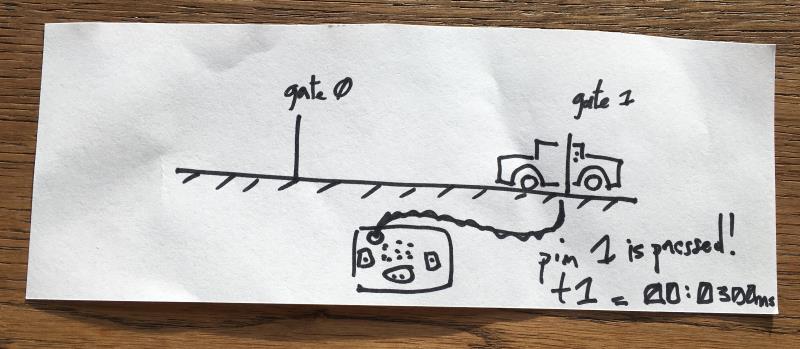 gate 0
gate 1
pin 1 is pressed!
t1 = 00:0300ms